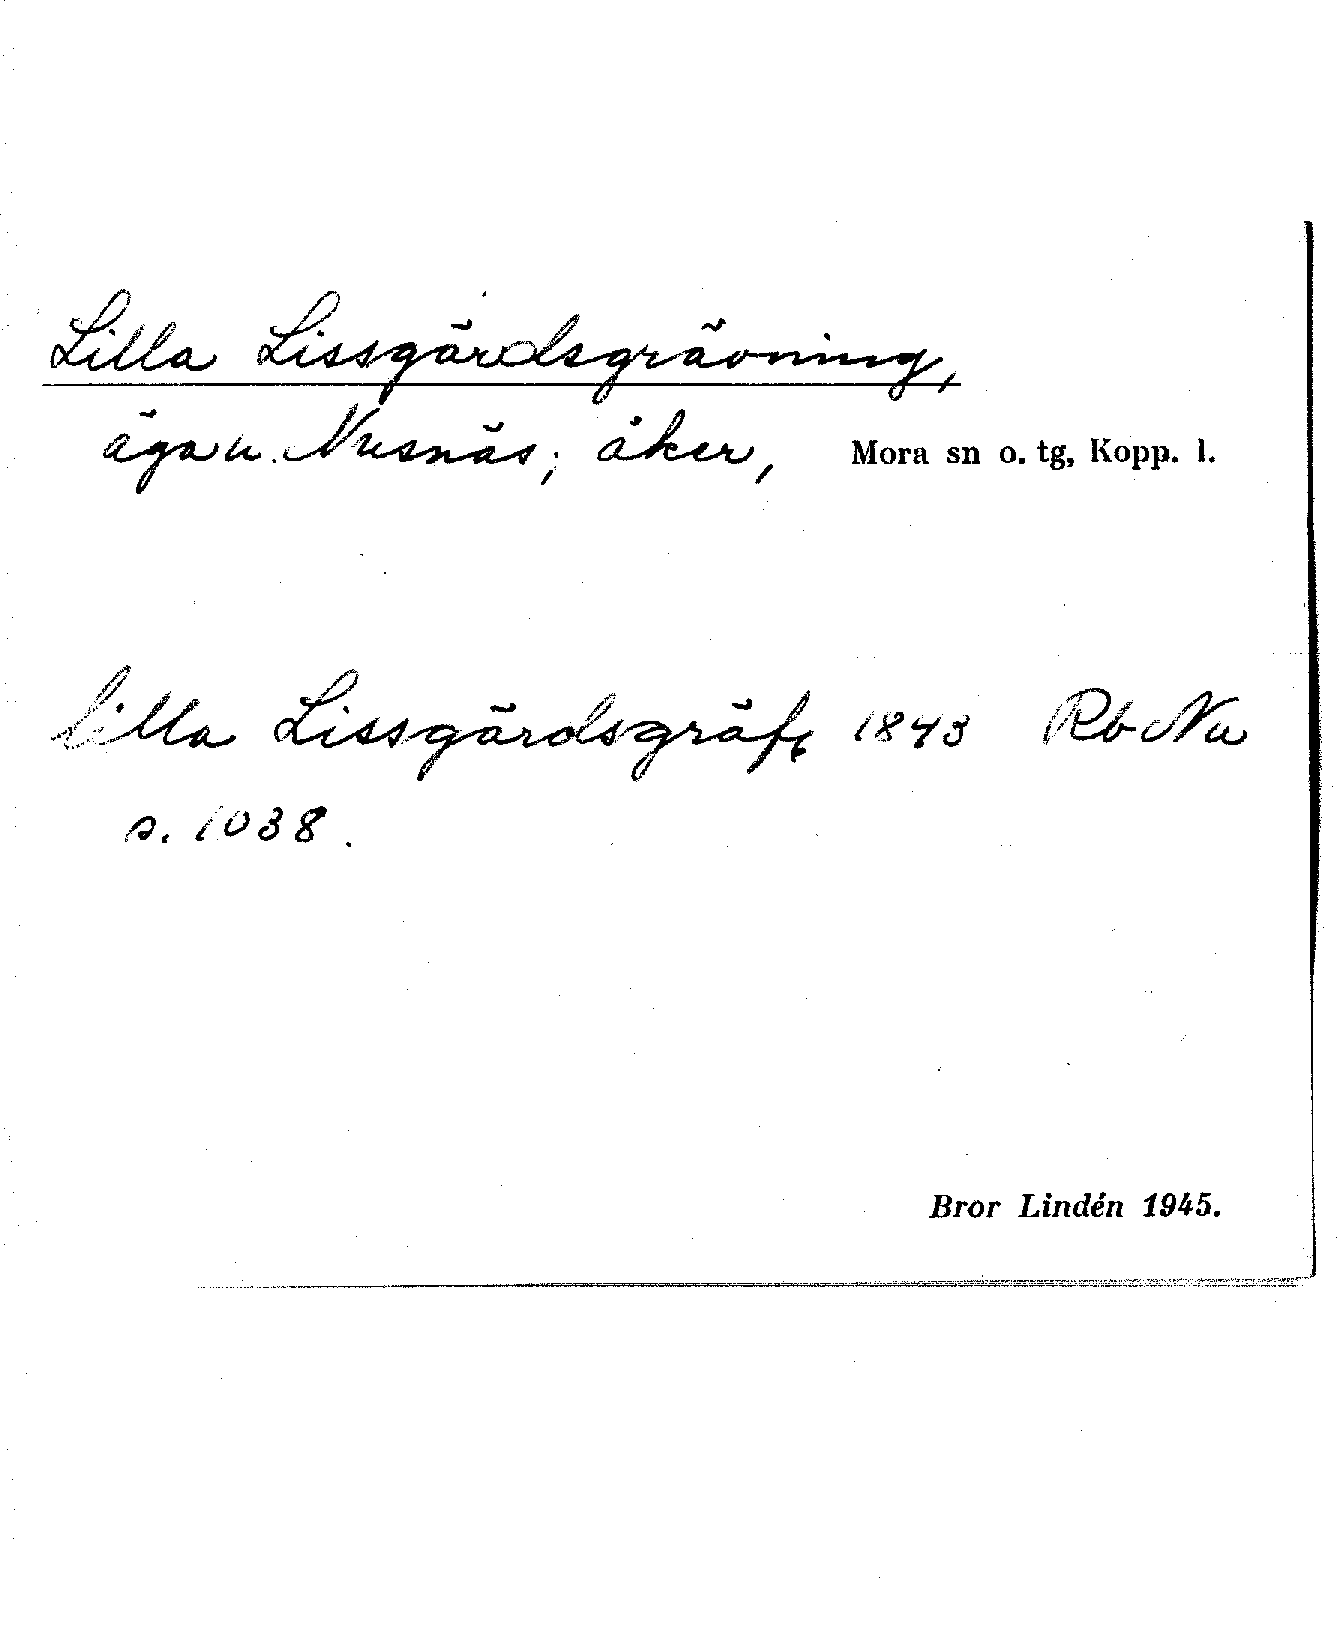 Lilla Lissgärdsgrävning,
äga u. Nusnäs; åker, Mora sn o. tg, Kopp. l.
lilla Lissgärdsgräf, 1843 Rb Nu
s. 1038.
Bror Lindén 1945.